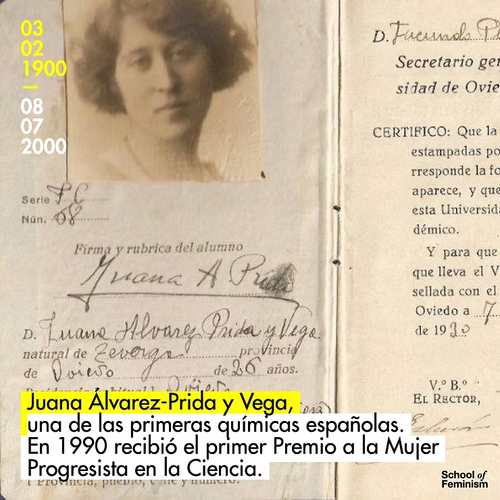 03
02
1900
—
08
07
2000
Serie F E
Núm. 68
Firma y rubrica del alumno
Juana A Prida
D. Juana Alvarez Prida y Vega
natural de Teverga provincia
de Oviedo de 26 años.
D. Facundo
Secretario gen
sidad de Ovie
CERTIFICO: Que la
estampadas po
rresponde la fo
aparece, y que
esta Universida
démico.
Y para que
que lleva el V
sellada con el
Oviedo a 7
de 1930
V.º B.º
EL RECTOR,
Juana Álvarez-Prida y Vega,
una de las primeras químicas españolas.
En 1990 recibió el primer Premio a la Mujer
Progresista en la Ciencia.
School of
Feminism